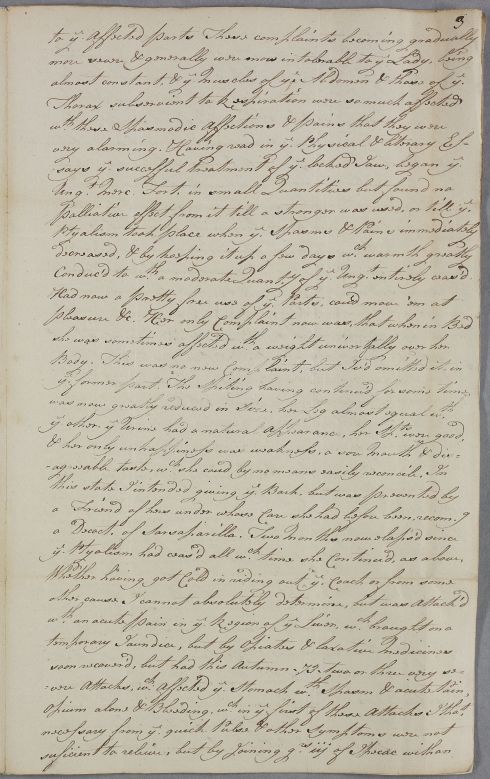 3
to yͤ Affected parts These complaints becoming gradually
more severe & generally were now intolerable to yͤ Lady, being
almost constant, & yͤ Muscles of yͤ Abdomen & those of yͤ
Thorax subservient to Respiration were so much affected
wth these Spasmodic Affections & Pains that they were
very alarming. Having read in yͤ Physical & Literary Es-
says yͤ successful treatment of yͤ locked Jaw, began yͤ
Ungt. Merc. Fort. in small Quantities but found no
Palliative effect from it till a stronger was used, or till yͤ
Ptyalism took place when yͤ Spasms & Pains immediately
decreased, & by keeping it up a few days wch warmth greatly
Conduc'd to wth a moderate Quantity of yͤ Ungt. entirely ceas'd.
Had now a pretty free use of yͤ Parts, could move em at
pleasure &c. Her only Complaint now was, that when in Bed
she was sometimes affected wth a weight universally over her
Body. This was no new Complaint, but I'd omitted it in
yͤ former part. The Spitting having continued for some time
was now greatly reduced in Size, her Leg almost equal wth
yͤ other, yͤ Urine had a natural Appearance, her were good
& her only unhappiness was weakness, a sore mouth & dis-
agreeable taste, wch she could by no means easily reconcile. In
this state I intended giving yͤ Bark, but was prevented by
a Friend of hers under whose Care she had before been, recomg
a Decoct. of Sarsaparilla. Two Months now elaps'd since
yͤ Ptyalism had ceas'd all wch time she Continued, as above,
Whether having got Cold in riding out yͤ Coach or from some
other cause I cannot absolutely determine, but was Attack'd
wth an acute pain in yͤ Region of yͤ Liver, wch brought on a
temporary Jaundice, but by Opiates & laxative medicines
soon recovered, but had this Autumn -73 two or three very se-
vere Attacks, wch Affected yͤ Stomach wth Spasm & acute Pain,
Opium alone & Bleeding, wch in yͤ first of these Attacks I thot
necessary from yͤ quick Pulse & other Symptoms were not
suficient to relieve, but by Joining gr iii of Thebaic with an